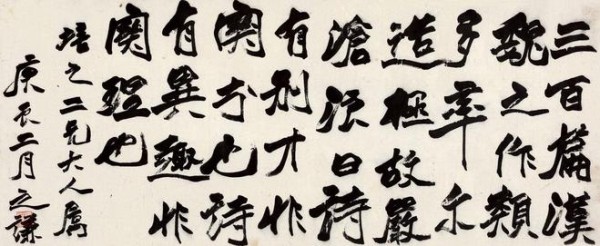 三百篇漢
魏之作類
多率尒
造極故嚴
滄浪曰詩
有別才非
關學也詩
有異趣非
關理也
培之二兄大人屬
庚辰二月之謙